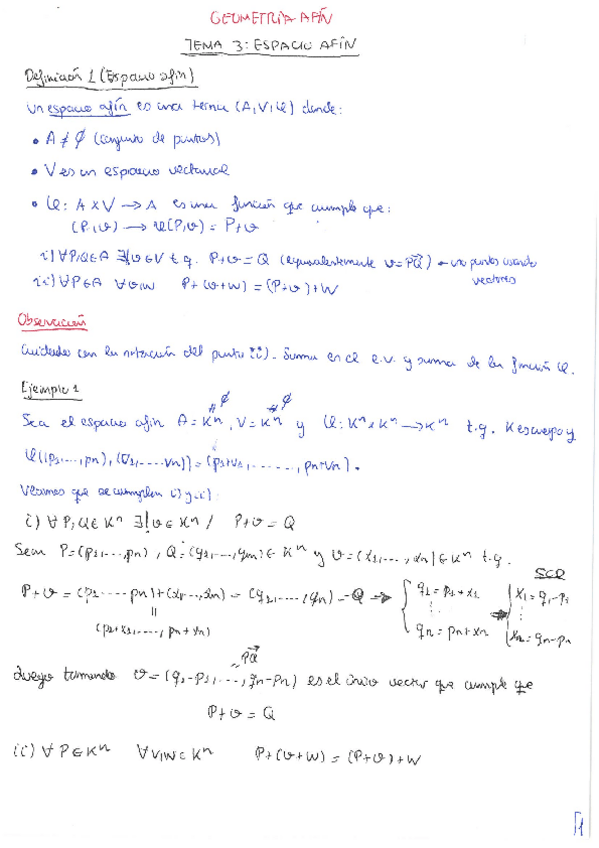 GEOMETRÍA AFÍN
TEMA 3: ESPACIO AFÍN
Definición 1 (Espacio afín)
Un espacio afín es una terna (A,V,φ) donde:
• A ≠ ∅ (conjunto de puntos)
• V es un espacio vectorial
• φ: A x V → A es una función que cumple que:
(P,v) → φ(P,v) = P+v
i) ∀P,Q∈A ∃!v∈V t.q. P+v = Q (equivalentemente v = PQ⃗) ← uno puntos usando
vectores
ii) ∀P∈A ∀v,w P+(v+w) = (P+v)+w
Observación
Cuidado con la notación del punto ii). Suma en el e.v. y suma de la función φ.
Ejemplo 1
≠ ∅ ≠ ∅
Sea el espacio afín A = Kⁿ, V = Kⁿ y φ: Kⁿ x Kⁿ → Kⁿ t.q. K es cuerpo y
φ((p1,...,pn), (v1,...,vn)) = (p1+v1,......,pn+vn).
Veamos que se cumplen i) y ii):
i) ∀P,Q∈Kⁿ ∃!v∈Kⁿ / P+v = Q
Sean P=(p1,...,pn), Q=(q1,...,qn)∈Kⁿ y v=(x1,...,xn)∈Kⁿ t.q.
SCD
P+v = (p1...pn)+(x1...,xn) = (q1,...,qn) = Q → { q1 = p1+x1 ⋮ qn = pn+xn → { x1 = q1-p1 ⋮ xn = qn-pn
||
(p1+x1,...,pn+xn)
PQ⃗
Luego tomando v = (q1-p1,...,qn-pn) es el único vector que cumple que
P+v = Q
ii) ∀P∈Kⁿ ∀v,w∈Kⁿ P+(v+w) = (P+v)+w
1